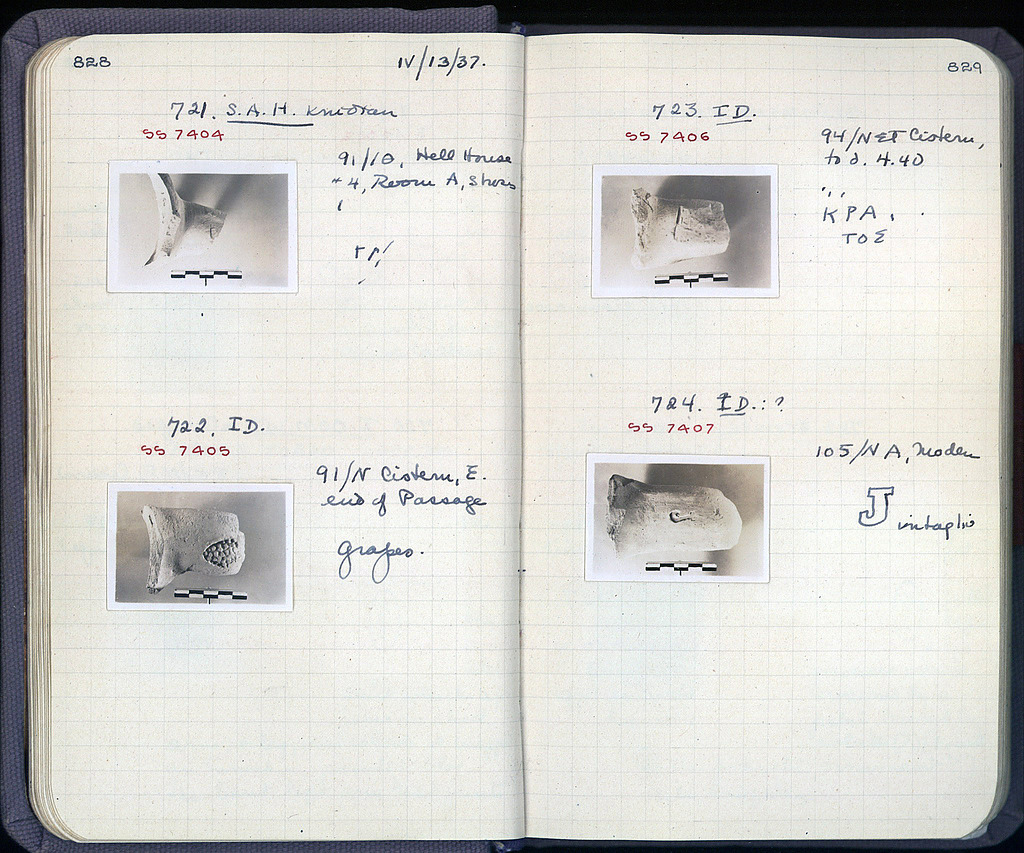 828
IV/13/37.
721. S.A.H. Knidian
SS 7404
91/10, Hell House
#4, Room A, Strosis
722. ID.
SS 7405
91/N Cistern, E.
end of Passage
grapes.
829
723. ID.
SS 7406
94/NET Cistern,
to d. 4.40
ΚΡΑ
ΤΟΣ
724. ID.: ?
SS 7407
105/NA, Modern
J intaglio